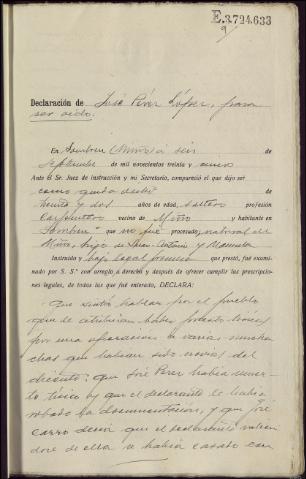 E.3.724.633
Declaración de José Pérez López, para
ser oido.
En Sombreu (Miño) a seis de
Septiembre de mil novecientos treinta y nueve
Ante el Sr. Juez de instrucción y mi Secretario, compareció el que dijo ser
como queda dicho de
treinta y dos años de edad, soltero profesión
Carpintero vecino de Miño y habitante en
Sombreu que no fue procesado, natural de
Miño, hijo de Juan Antonio y Manuela
Instruido y bajo legal que prestó, fué exami-
nado por S. Sª con arreglo á derecho y después de ofrecer cumplir las prescripcio-
nes legales, de todas las que fué enterado, DECLARA:
Que sintió hablar por el pueblo
que de haber
por una a varias mucha
chas que habían sido novias del
que José Pérez había muer-
to y que el declarante le había
robado la documentación, y que José
Carro decía que el declarante
de ella se había casado con